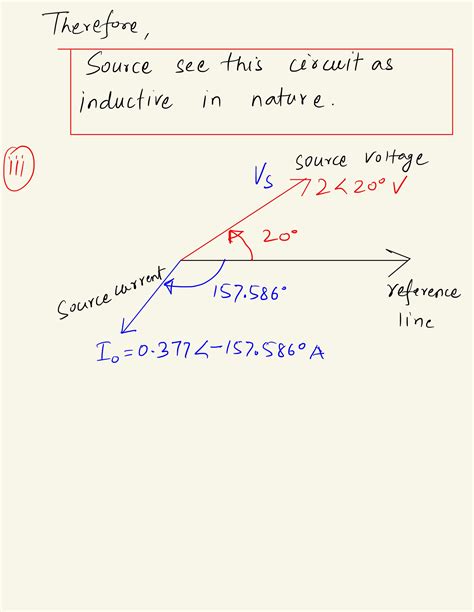 Therefore,
Source see this circuit as
inductive in nature.
iii
source voltage
Vs 2∠20° V
20°
Source current
157.586°
reference
line
I₀ = 0.377∠-157.586° A